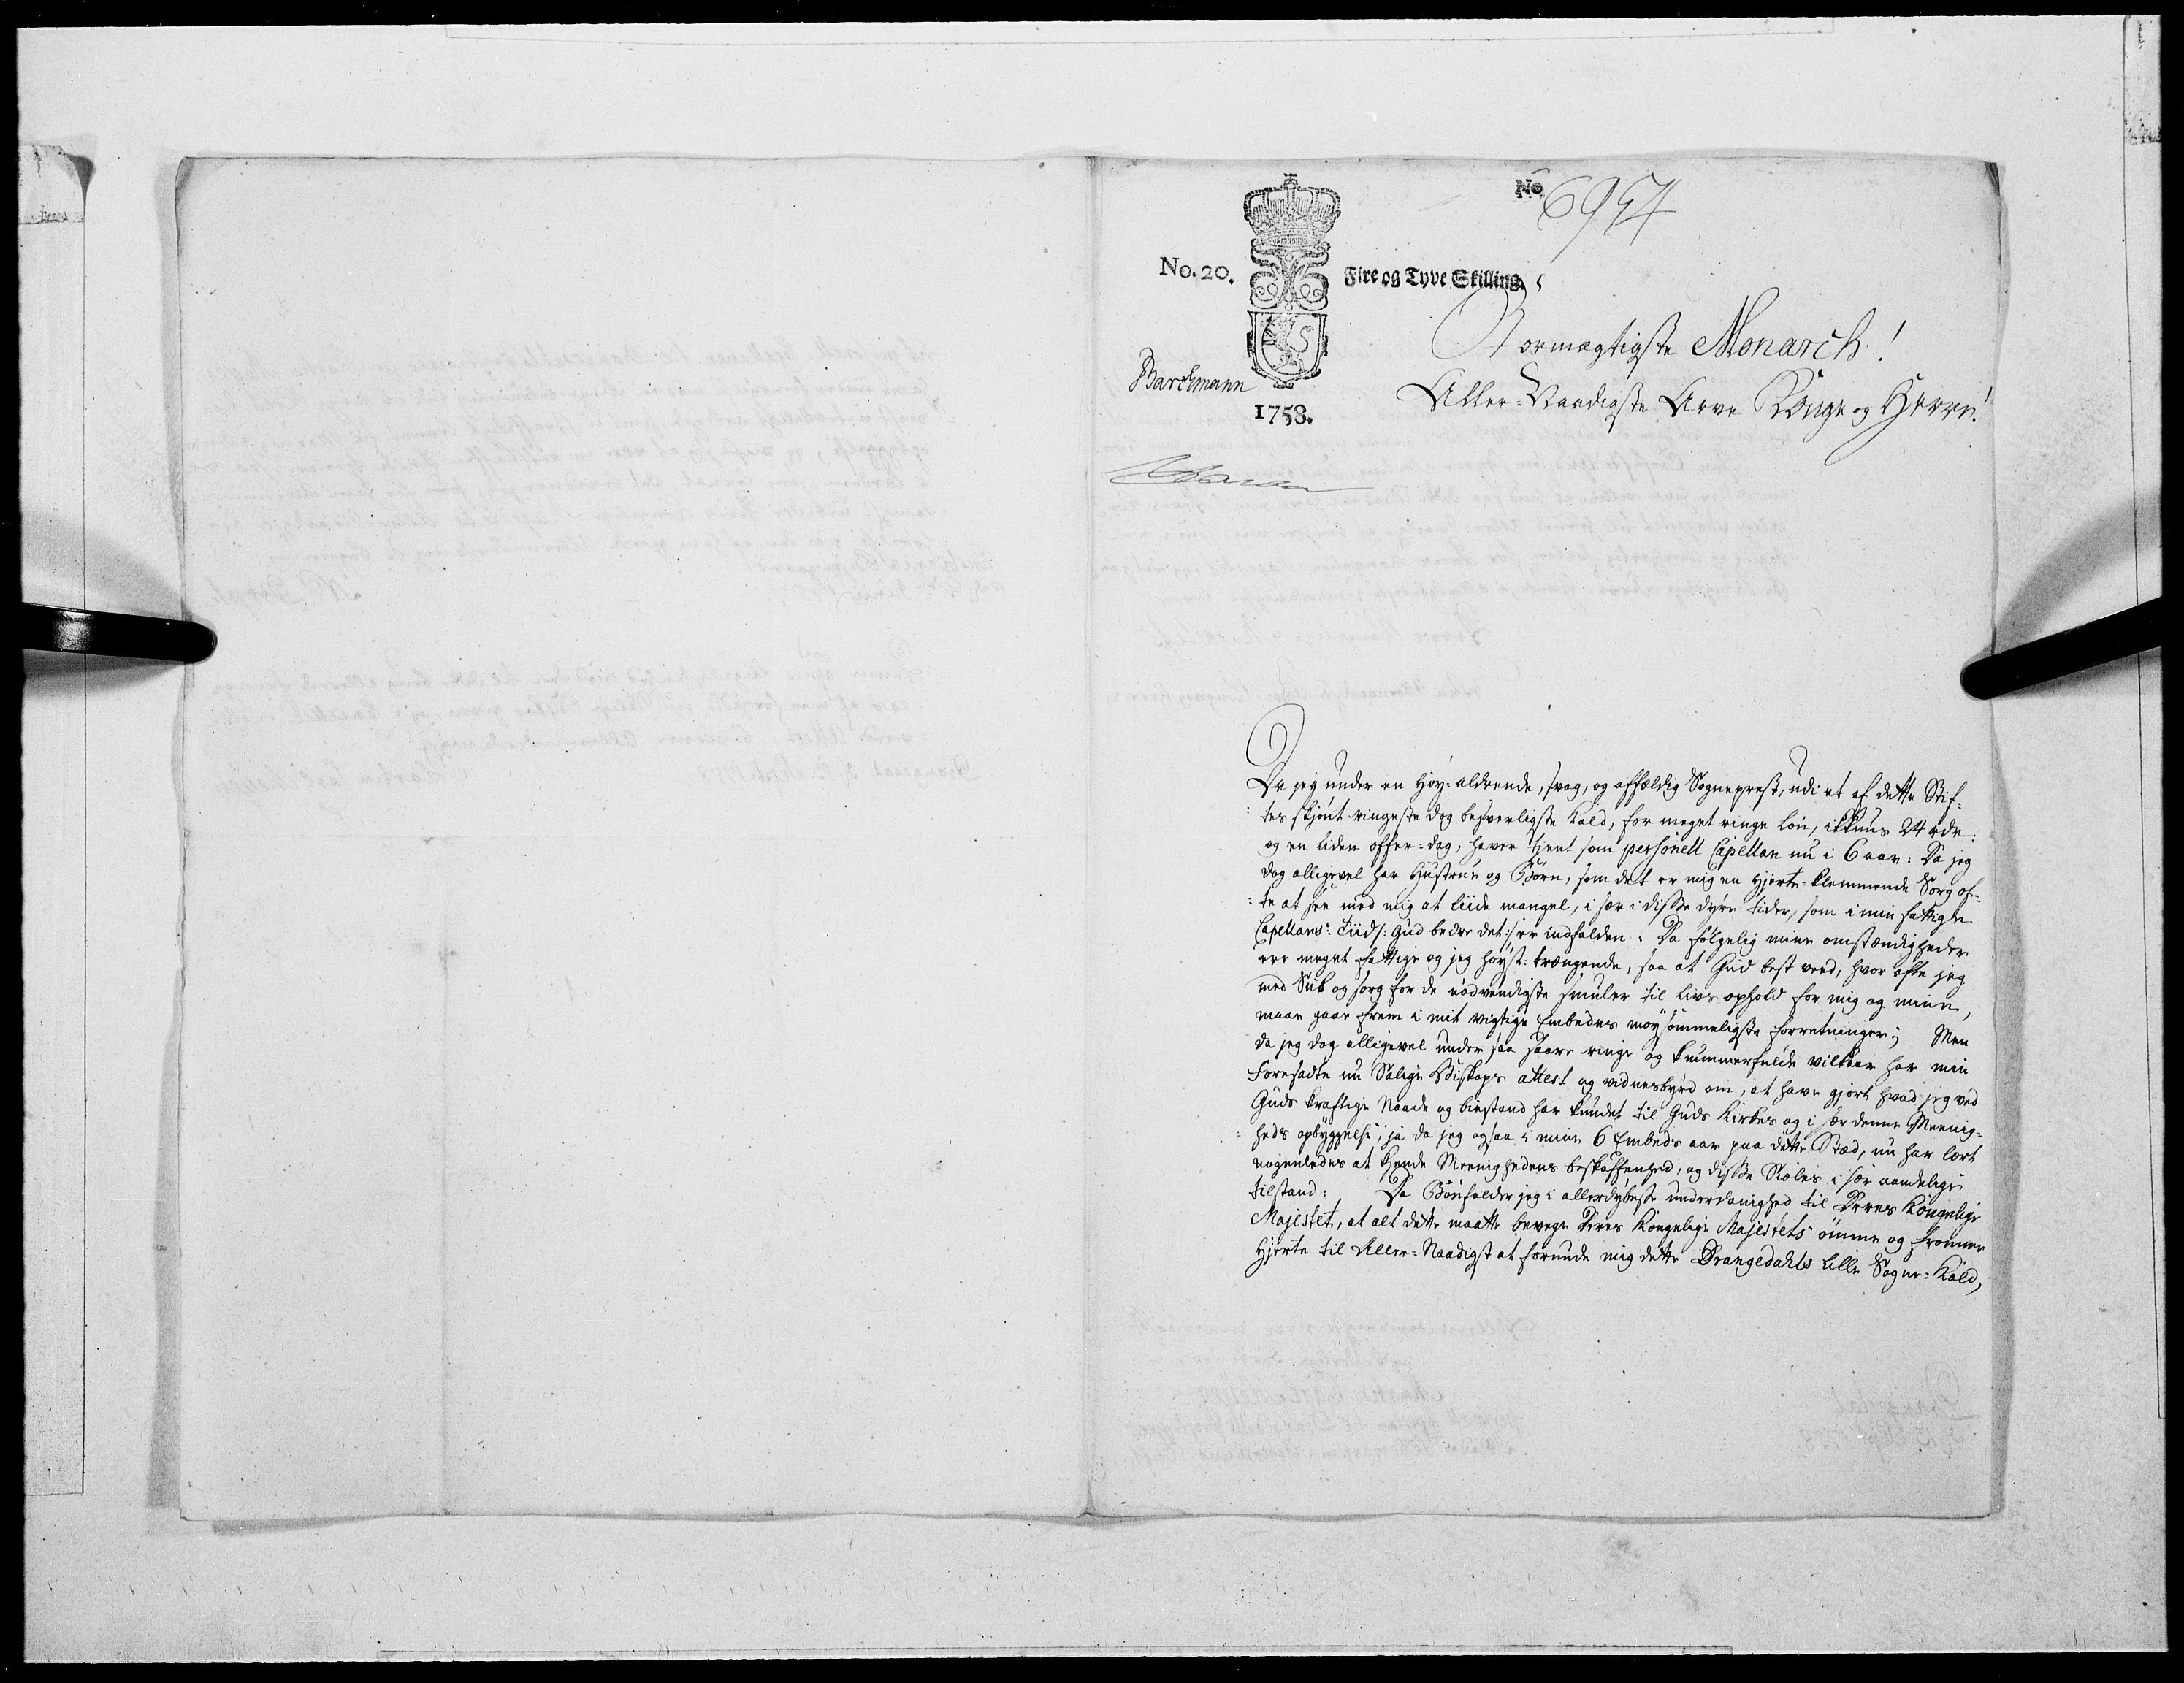 No 6954
No. 20. Fire og Tyve Skilling.
Stormægtigste Monarch!
Barchmann
Aller-Naadigste Arve Konge og Herre!
1758.
Da jeg under en høy-aldrende, svag, og affældig Sogneprest, udi et af dette Stif-
tes skjönt ringeste dog besverligste Kald, for meget ringe Lön, ikkuns 24 rdr:
og en liden offer-dag, haver tjent som personell Capellan nu i 6 aar: Da jeg
dog alligevel har Hustrue og Börn, som det er mig en Hjerte-klemmende Sorg of-
te at see med mig at liide mangel, i sær i disse dyre tider, som i min fattige
Capellans-Tiid /: Gud bedre det :/ er indfalden: Da fölgelig mine omstændigheder
ere meget fattige og jeg höyst-trængende, saa at Gud best veed, hvor ofte jeg
med Suk og sorg for de nödvendigste smuler til Livs ophold for mig og mine,
maae gaae frem i mit vigtige Embedes möysommeligste forretninger; Men
da jeg dog alligevel under saa saare ringe og kummerfulde vilkaar har min
Foresadte nu Salige Biskops attest og vidnesbyrd om, at have gjort hvad jeg ved
Guds kraftige Naade og biestand har kundet til Guds Kirkes og i sær denne Meenig-
heds opbyggelse; ja da jeg ogsaa i mine 6 Embeds aar paa dette Stæd, nu har lært
nogenledes at kjende Meenighedens beskaffenhed, og disse Siæles i sær aandelige
tilstand: Da Bönfalder jeg i allerdybeste underdanighed til Deres Kongelige
Majestet, at alt dette maatte bevæge Deres Kongelige Majestets ömme og fromme
Hjerte til Aller-Naadigst at forunde mig dette Drangedahls lille Sogne-Kald,